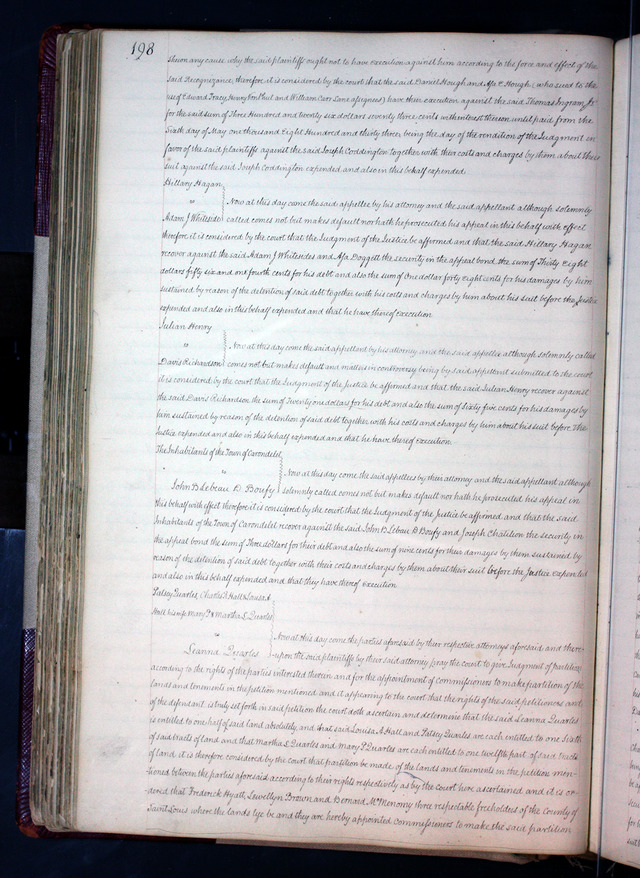 198
shewn any cause why the said plaintiffs ought not to have execution against him according to the force and effect of the
said Recognizance, therefore it is considered by the court that the said Daniel Hough and Asa E Hough, who sued to the
use of Edward Tracy, Henry Von Phul and William Carr Lane assignees) have their execution against the said Thomas Ingram Jr
for the said sum of Three Hundred and twenty six dollars seventy three cents with interest thereon until paid from the
sixth day of May one thousand Eight Hundred and thirty three, being the day of the rendition of the Judgment in
favor of the said plaintiffs against the said Joseph Coddington together with their costs and charges by them about their
suit against the said Joseph Coddington expended and also in this behalf expended
Hillary Hagan
vs
Adam J Whitesides
Now at this day came the said appellee by his attorney and the said appellant although solemnly
called comes not but makes default nor hath he prosecuted his appeal in this behalf with effect
therefore it is considered by the court that the Judgment of the Justice be affirmed and that the said Hillary Hagan
recover against the said Adam J Whitesides and Asa Doggett the security in the appeal bond the sum of Thirty Eight
dollars fifty six and one fourth cents for his debt and also the sum of One dollar forty eight cents for his damages by him
sustained by reason of the detention of said debt together with his costs and charges by him about his suit before the Justice
expended and also in this behalf expended and that he have thereof execution
Julian Henry
vs
Davis Richardson
Now at this day come the said appellant by his attorney and the said appellee although solemnly called
comes not but makes default and matters in controversy being by said appellant submitted to the court
it is considered by the court that the Judgment of the Justice be affirmed and that the said Julian Henry recover against
the said Davis Richardson the sum of Twenty one dollars for his debt and also the sum of Sixty five cents for his damages by
him sustained by reason of the detention of said debt together with his costs and charges by him about his suit before the
Justice expended and also in this behalf expended and that he have thereof execution.
The Inhabitants of the Town of Carondelet
vs
John B Lebeau D Boufy
Now at this day come the said appellees by their attorney and the said appellant although
solemnly called comes not but makes default nor hath he prosecuted his appeal in
this behalf with effect therefore it is considered by the court that the Judgment of the Justice be affirmed and that the said
Inhabitants of the Town of Carondelet recover against the said John B Lebau D Boufy and Joseph the security in
the appeal bond the sum of Three dollars for their debt and also the sum of nine cents for their damages by them sustained by
reason of the detention of said debt together with their costs and charges by them about their suit before the Justice expended
and also in this behalf expended and that they have thereof execution
Patsey Quarles, Charles Hall & Louisa A
Hall his wife Mary P & Martha S Quarles
vs
Leanna Quarles
Now at this day come the parties aforesaid by their respective attorneys aforesaid and there-
upon the said plaintiffs by their said attorney pray the court to give Judgment of partition
according to the rights of the parties interested therein and for the appointment of commissioners to make partition of the
lands and tenements in the petition mentioned and it appearing to the court that the rights of the said petitioners and
of the defendant is truly set forth in said petition the court doth ascertain and determine that the said Leanna Quarles
is entitled to one half of said land absolutely, and that said Louisa A Hall and Patsey Quarles are each entitled to one sixth
of said tracts of land and that Martha S Quarles and Mary P Quarles are each entitled to one twelfth part of said tracts
of land, it is therefore considered by the court that partition be made of the lands and tenements in the petition men-
tioned between the parties aforesaid according to their rights respectively as by the Court here ascertained and it is or-
dered that Frederick Hyatt, Lewellyn Brown and Bernard McMenomy three respectable freeholders of the County of
Saint Louis where the lands lye be and they are hereby appointed commissioners to make the said partition